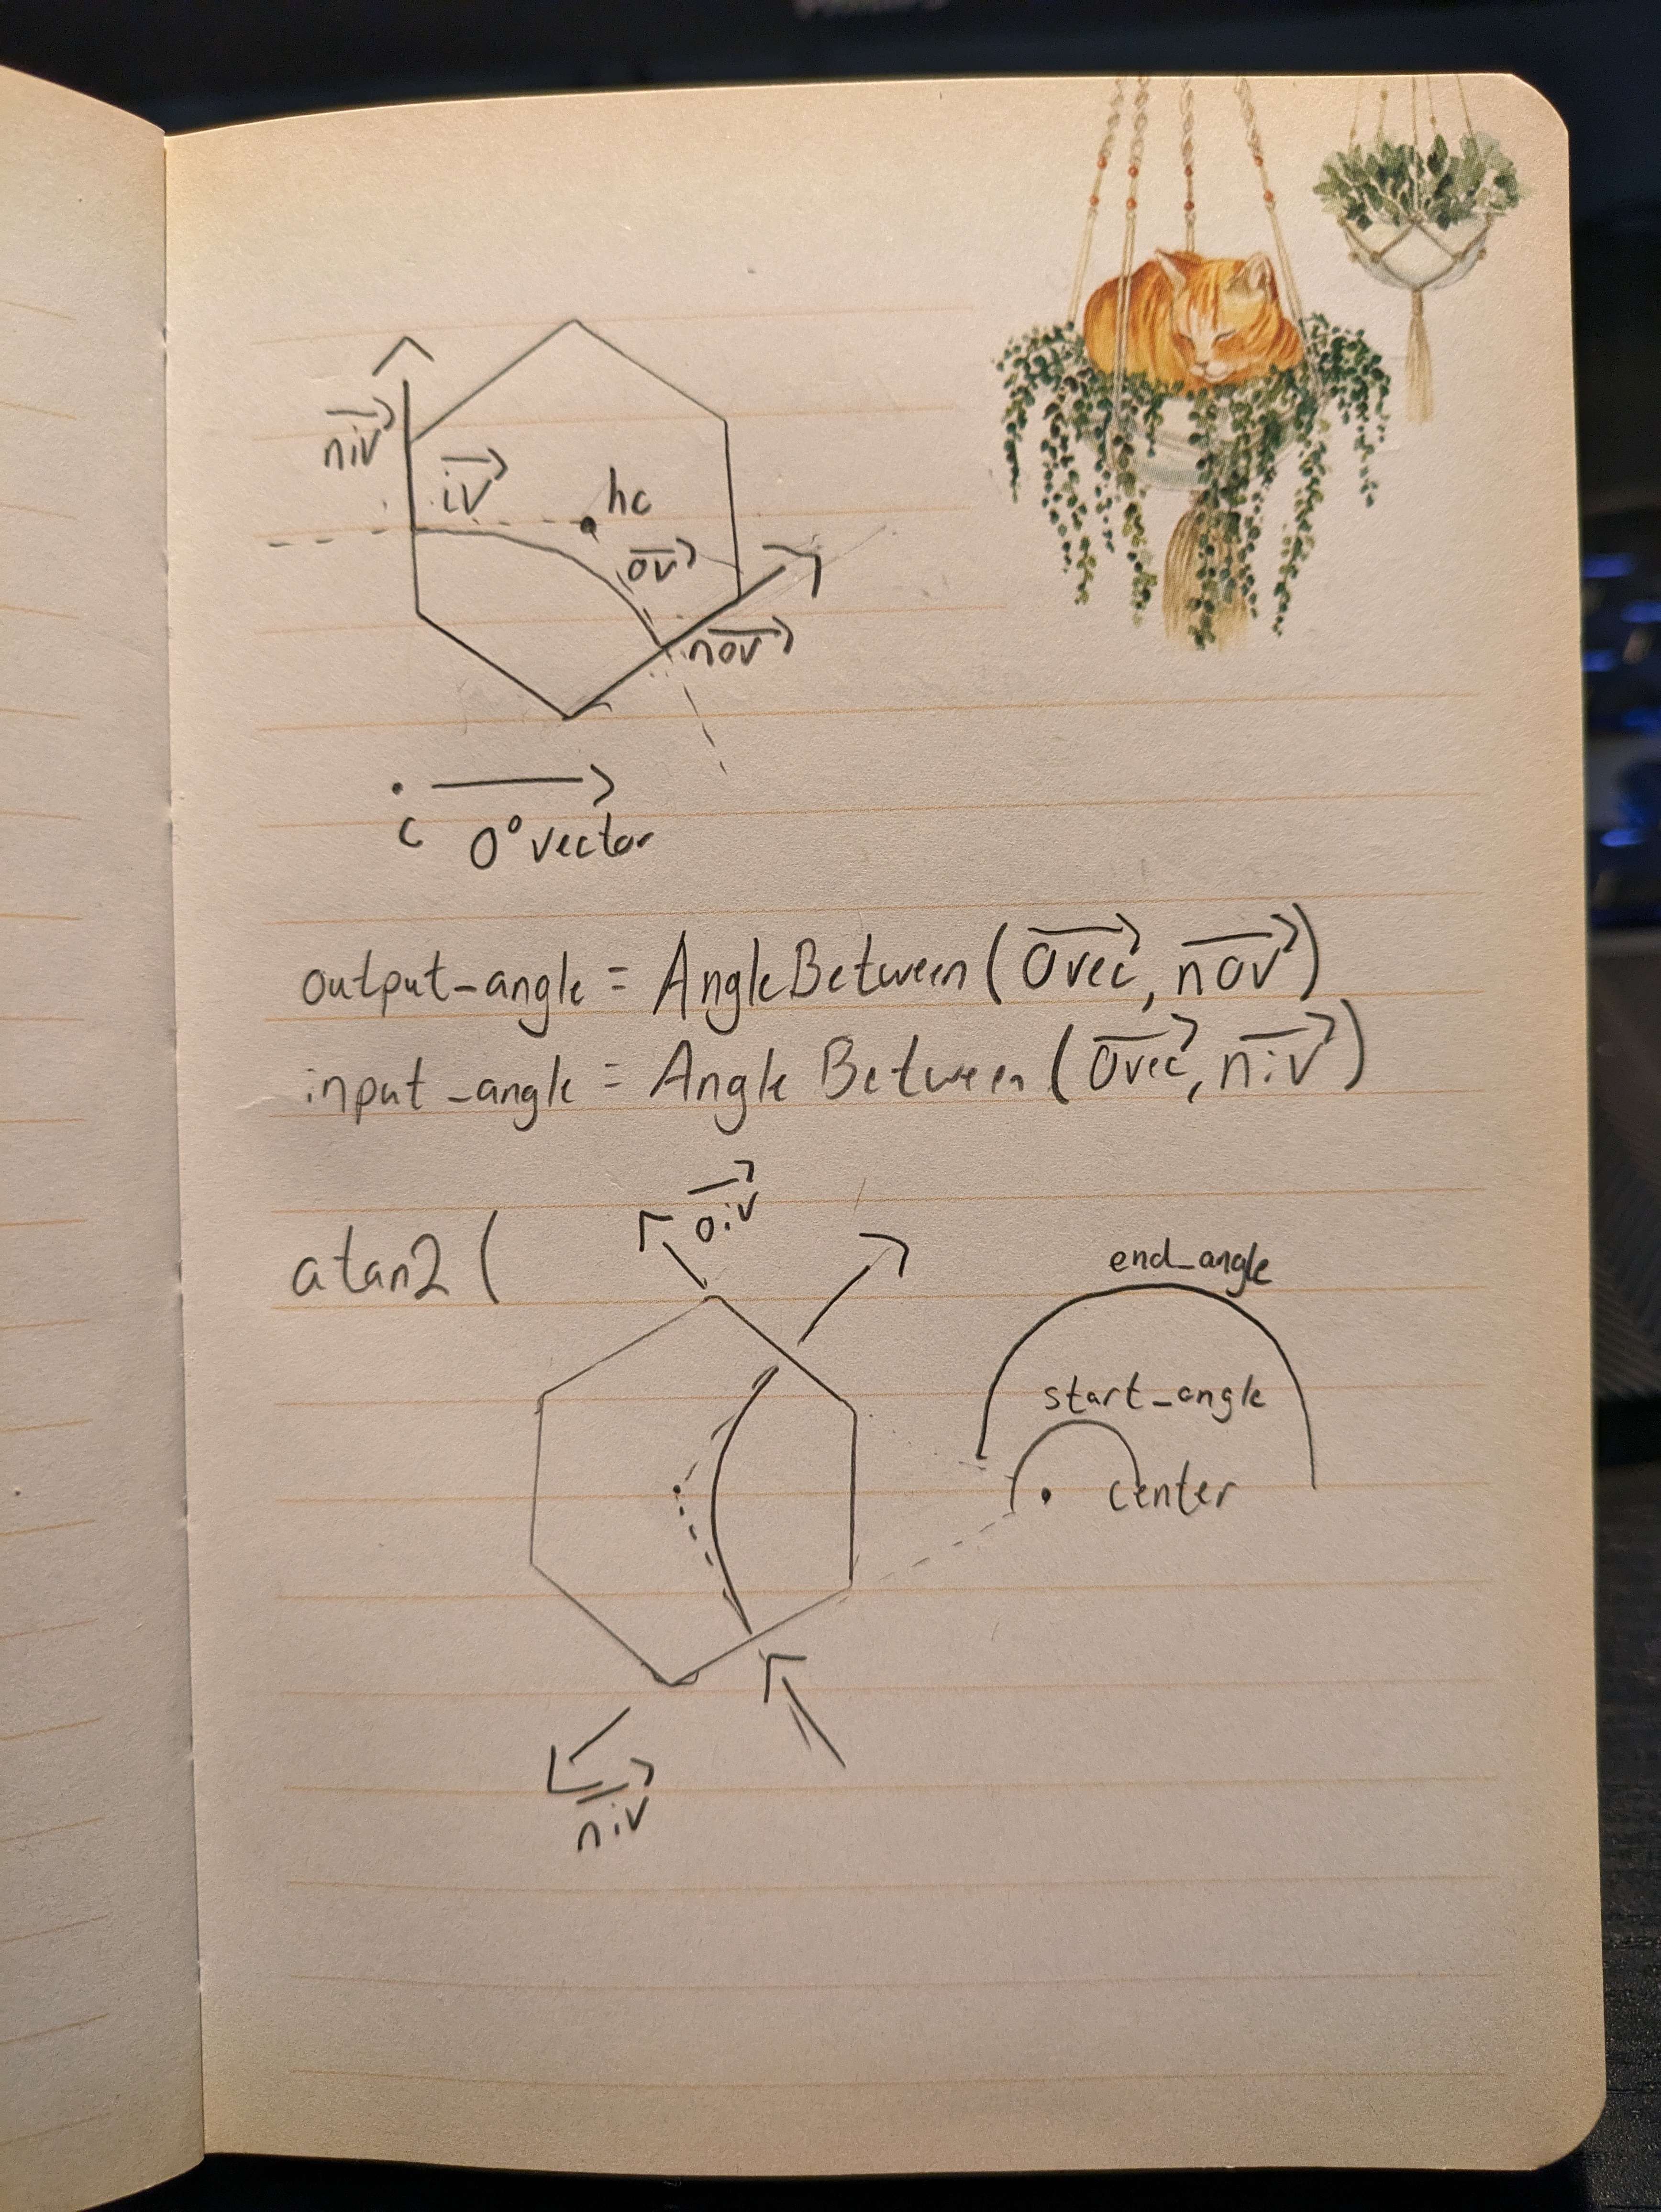 niv
iv
hc
ov
nov
c
0° vector
output_angle = AngleBetween(0vec, nov)
input_angle = AngleBetween(0vec, niv)
atan2(
oiv
end_angle
start_angle
center
niv